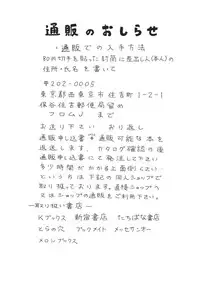 通販のおしらせ
・通販での入手方法
80の切手を貼った封筒に差出し人(本人)の
住所・氏名を書いて
〒202-0005
東京都西東京市住吉町1-2-1
保谷住吉郵便局留め
フロムJ まで
お送り下さい 折り返し
通販申し込書と通販可能な本を
返送します。カタログ確認の後
通販申し込書にて発注して下さい
多少時間がかかる上面倒くさい…
という方は下記の同人ショップで
取り扱っております。直接ショップ
又はショップの通販をご利用下さい。
―取り扱い書店―
Kブックス 新宿書店 たちばな書店
とらの穴 アックメイト メッセサンオー
メロンブックス